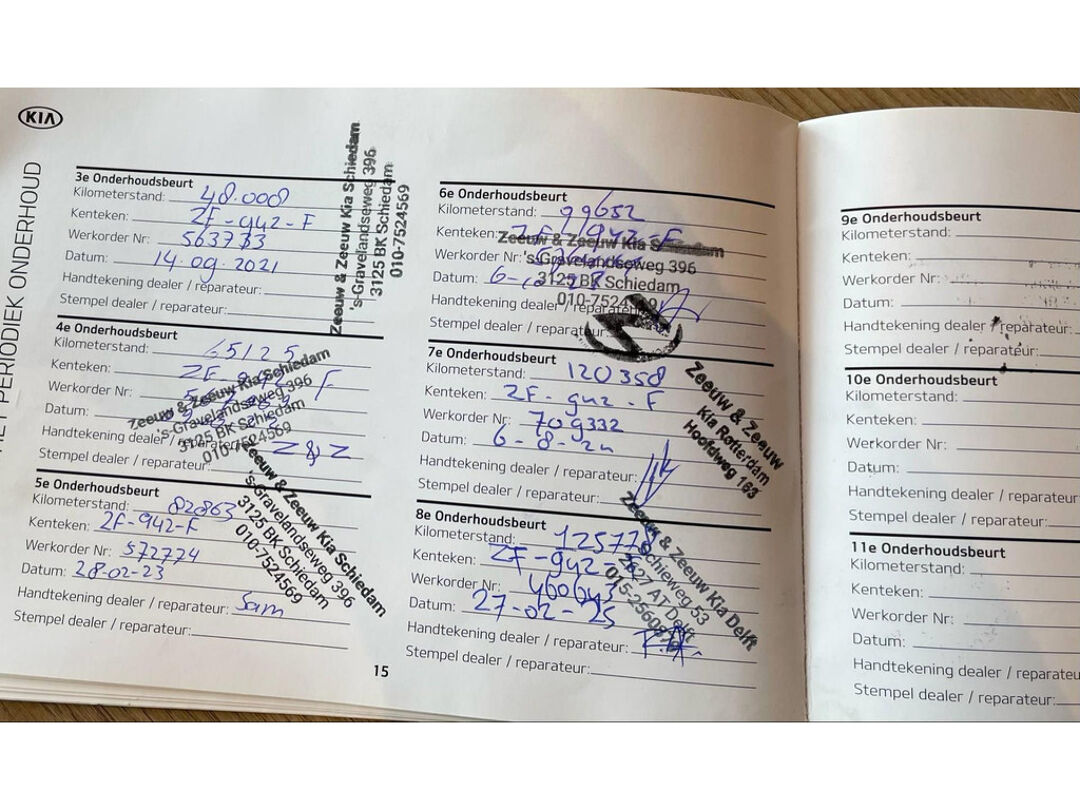 KIA
HET PERIODIEK ONDERHOUD
3e Onderhoudsbeurt
Kilometerstand: 48.008
Kenteken: ZF-942-F
Werkorder Nr: 563733
Datum: 14.09.2021
Handtekening dealer / reparateur:
Stempel dealer / reparateur:
Zeeuw & Zeeuw Kia Schiedam
's-Gravelandseweg 396
3125 BK Schiedam
010-7524569
4e Onderhoudsbeurt
Kilometerstand: 65125
Kenteken: ZF-942-F
Werkorder Nr:
Datum:
Handtekening dealer / reparateur: Z&Z
Stempel dealer / reparateur:
Zeeuw & Zeeuw Kia Schiedam
's-Gravelandseweg 396
3125 BK Schiedam
010-7524569
5e Onderhoudsbeurt
Kilometerstand: 82863
Kenteken: ZF-942-F
Werkorder Nr: 572774
Datum: 28-02-23
Handtekening dealer / reparateur: Sam
Stempel dealer / reparateur:
Zeeuw & Zeeuw Kia Schiedam
's-Gravelandseweg 396
3125 BK Schiedam
010-7524569
15
6e Onderhoudsbeurt
Kilometerstand: 99652
Kenteken: ZF-942-F
Werkorder Nr:
Datum: 6-
Handtekening dealer / reparateur:
Stempel dealer / reparateur:
Zeeuw & Zeeuw Kia Schiedam
's-Gravelandseweg 396
3125 BK Schiedam
010-7524569
7e Onderhoudsbeurt
Kilometerstand: 120358
Kenteken: ZF-942-F
Werkorder Nr: 709332
Datum: 6-8-24
Handtekening dealer / reparateur:
Stempel dealer / reparateur:
Zeeuw & Zeeuw
Kia Rotterdam
Hoofdweg 168
8e Onderhoudsbeurt
Kilometerstand: 125778
Kenteken: ZF-942-F
Werkorder Nr: 460643
Datum: 27-02-25
Handtekening dealer / reparateur:
Stempel dealer / reparateur:
Zeeuw & Zeeuw Kia Delft
Schieweg 53
2627 AT Delft
9e Onderhoudsbeurt
Kilometerstand:
Kenteken:
Werkorder Nr:
Datum:
Handtekening dealer / reparateur:
Stempel dealer / reparateur:
10e Onderhoudsbeurt
Kilometerstand:
Kenteken:
Werkorder Nr:
Datum:
Handtekening dealer / reparateur
Stempel dealer / reparateur:
11e Onderhoudsbeurt
Kilometerstand:
Kenteken:
Werkorder Nr:
Datum:
Handtekening dealer / reparateur
Stempel dealer / reparateur: